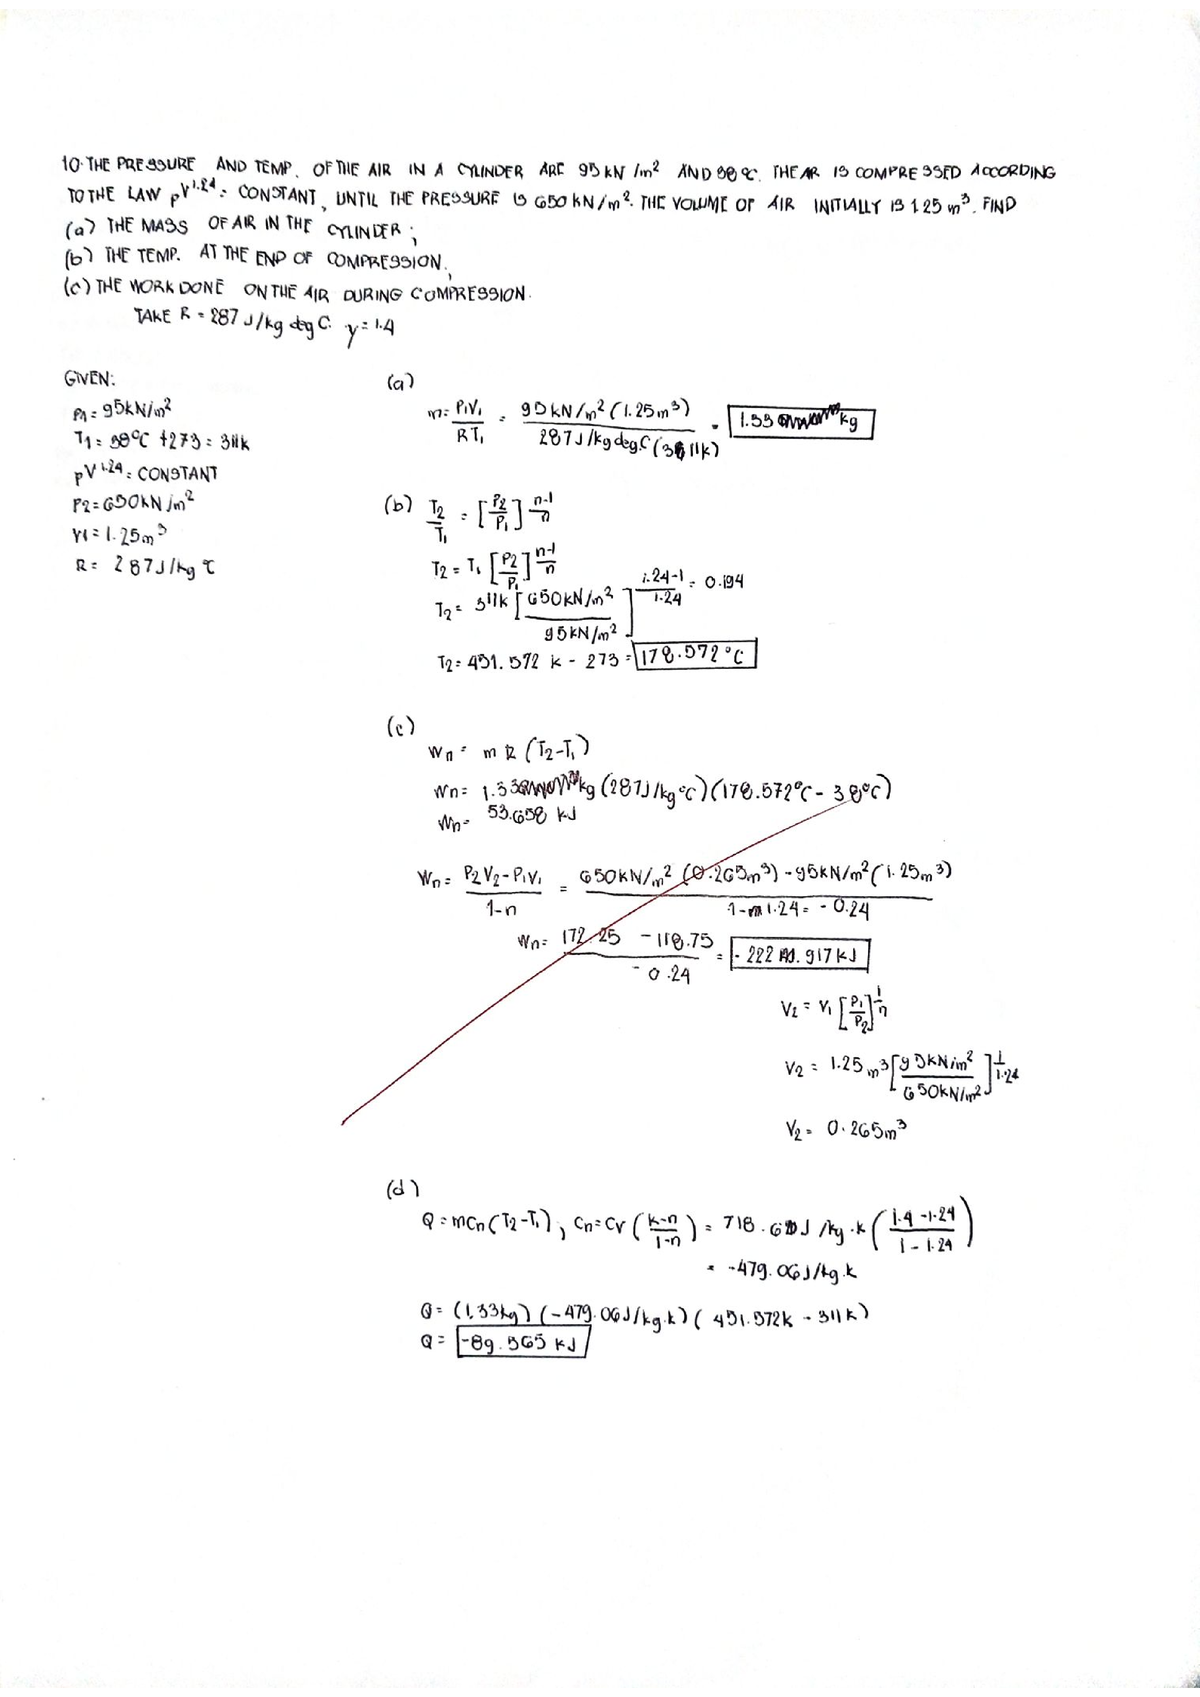 10. THE PRESSURE AND TEMP. OF THE AIR IN A CYLINDER ARE 95 kN/m² AND 38 °C. THE AIR IS COMPRESSED ACCORDING
TO THE LAW pV^1.24 = CONSTANT, UNTIL THE PRESSURE IS 650 kN/m². THE VOLUME OF AIR INITIALLY IS 1.25 m³. FIND
(a) THE MASS OF AIR IN THE CYLINDER;
(b) THE TEMP. AT THE END OF COMPRESSION;
(c) THE WORK DONE ON THE AIR DURING COMPRESSION.
TAKE R = 287 J/kg deg C. γ = 1.4
GIVEN:
P1 = 95kN/m²
T1 = 38°C + 273 = 311k
pV^1.24 = CONSTANT
P2 = 650kN/m²
V1 = 1.25m³
R = 287J/kg °C
(a)
m = P1V1 / RT1 = 95kN/m² (1.25m³) / 287J/kg deg.C (311k) = 1.33 kg
(b) T2/T1 = [P2/P1]^(n-1/n)
T2 = T1 [P2/P1]^(n-1/n)
T2 = 311k [650kN/m² / 95kN/m²]^(1.24-1/1.24) = 0.194
T2 = 451.572 k - 273 = 178.572 °C
(c)
Wn = m R (T2-T1)
Wn = 1.33 kg (287J/kg°C) (178.572°C - 38°C)
Wn = 53.658 kJ
Wn = P2V2 - P1V1 / 1-n = 650kN/m² (0.265m³) - 95kN/m² (1.25m³) / 1-1.24 = -0.24
Wn = 172.25 - 118.75 / -0.24 = - 222.917 kJ
V2 = V1 [P1/P2]^(1/n)
V2 = 1.25m³ [95kN/m² / 650kN/m²]^(1/1.24)
V2 = 0.265m³
(d)
Q = mCn (T2-T1), Cn = Cv (k-n / 1-n) = 718. J/kg·k (1.4-1.24 / 1-1.24)
= -479.06J/kg.k
Q = (1.33kg) (-479.06J/kg.k) (451.572k - 311k)
Q = -89.565 kJ